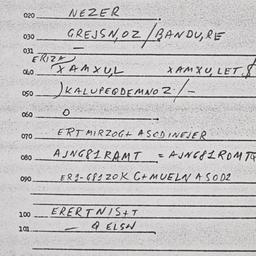 020 NEZER
030 GREJSN,OZ/BANDURE
031 —
ERIZA
040 XAMXUL XAMXU,LET
050 )KALUPEQDEMNOZ/-
060 O
070 ERTMIRZOG+ ASODINEJER
080 AJNG81RAMT = AJNG81ROMTQ
090 ER1-681ZOK C+MUELNASOD2
100 ERERTNIS+T
101 — QELSN